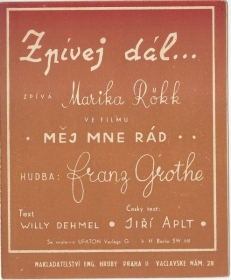 Zpívej dál...
ZPÍVÁ Marika Rökk
VE FILMU
· MĚJ MNE RÁD ·
HUDBA: Franz Grothe
Text Český text:
WILLY DEHMEL · JIŘÍ APLT ·
UFATON Verlags G. Berlin SW
NAKLADATELSTVÍ ENG. HRUBÝ PRAHA II VACLAVSKÉ NÁM. 28